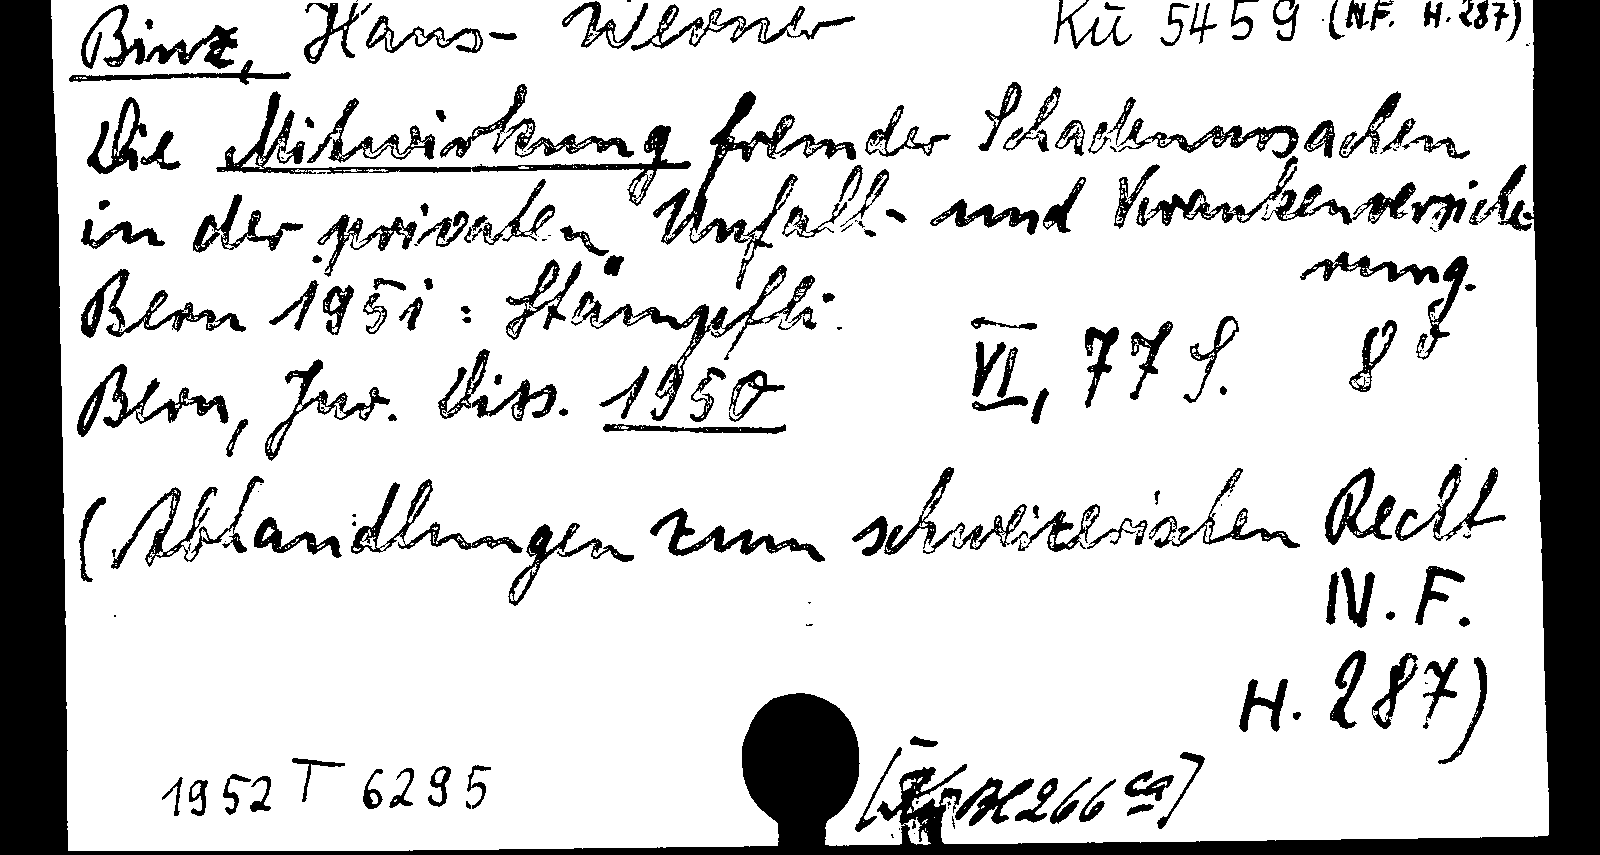 Binz, Hans-Werner Kü 5459 (N.F. H.287)
Die Mitwirkung fremder Schadenursachen
in der privaten Unfall- und Krankenversiche-
rung.
Bern 1951: Stämpfli.
VI, 77 S. 8°
Bern, Jur. Diss. 1950
(Abhandlungen zum schweizerischen Recht
N.F.
H. 287)
1952 T 6295
Bl 266 ca]